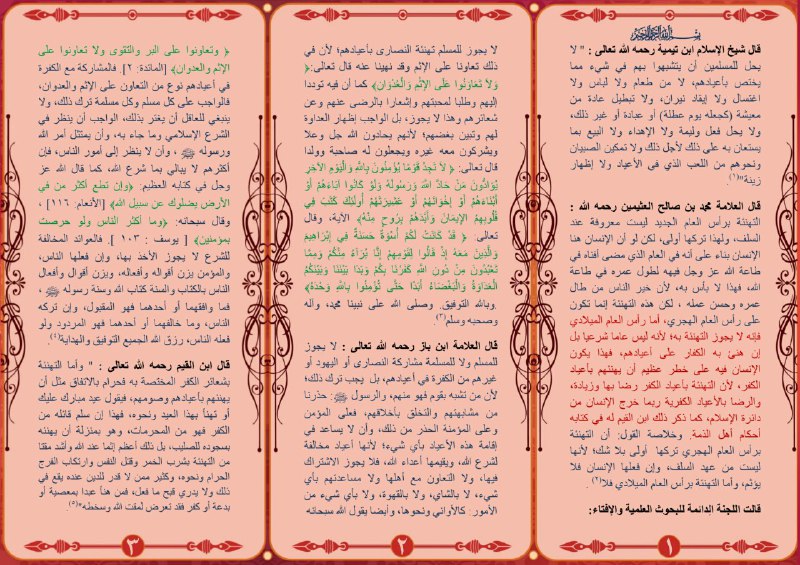 بسم الله الرحمن الرحيم
قال شيخ الإسلام ابن تيمية رحمه الله تعالى : " لا
يحل للمسلمين أن يتشبهوا بهم في شيء مما
يختص بأعيادهم، لا من طعام ولا لباس ولا
اغتسال ولا إيقاد نيران، ولا تبطيل عادة من
معيشة (كجعله يوم عطلة) أو عبادة أو غير ذلك،
ولا يحل فعل وليمة ولا الإهداء ولا البيع بما
يستعان به على ذلك لأجل ذلك ولا تمكين الصبيان
ونحوهم من اللعب الذي في الأعياد ولا إظهار
زينة"(١).
قال العلامة محمد بن صالح العثيمين رحمه الله :
التهنئة برأس العام الجديد ليست معروفة عند
السلف، ولهذا تركها أولى، لكن لو أن الإنسان هنا
الإنسان بناء على أنه في العام الذي مضى أفناه في
طاعة الله عز وجل فيهنه لطول عمره في طاعة
الله، فهذا لا بأس به، لأن خير الناس من طال
عمره وحسن عمله ، لكن هذه التهنئة إنما تكون
على رأس العام الهجري، أما رأس العام الميلادي
فإنه لا يجوز التهنئة به؛ لأنه ليس عاما شرعيا بل
إن هنئ به الكفار على أعيادهم، فهذا يكون
الإنسان فيه على خطر عظيم أن يهنئهم بأعياد
الكفر، لأن التهنئة بأعياد الكفر رضا بها وزيادة،
والرضا بالأعياد الكفرية ربما خرج الإنسان من
دائرة الإسلام، كما ذكر ذلك ابن القيم له في كتابه
أحكام أهل الذمة. وخلاصة القول: أن التهنئة
برأس العام الهجري تركها أولى بلا شك؛ لأنها
ليست من عهد السلف، وإن فعلها الإنسان فلا
يؤثم، وأما التهنئة برأس العام الميلادي فلا(٢).
قالت اللجنة الدائمة للبحوث العلمية والإفتاء:
١
لا يجوز للمسلم تهنئة النصارى بأعيادهم؛ لأن في
ذلك تعاونا على الإثم وقد نهينا عنه قال تعالى:﴿
وَلَا تَعَاوَنُوا عَلَى الْإِثْمِ وَالْعُدْوَانِ﴾ كما أن فيه توددا
إليهم وطلبا لمحبتهم وإشعارا بالرضى عنهم وعن
شعائرهم وهذا لا يجوز، بل الواجب إظهار العداوة
لهم وتبين بغضهم؛ لأنهم يحادون الله جل وعلا
ويشركون معه غيره ويجعلون له صاحبة وولدا
قال تعالى: ﴿ لَا تَجِدُ قَوْمًا يُؤْمِنُونَ بِاللَّهِ وَالْيَوْمِ الْآخِرِ
يُوَادُّونَ مَنْ حَادَّ اللَّهَ وَرَسُولَهُ وَلَوْ كَانُوا آبَاءَهُمْ أَوْ
أَبْنَاءَهُمْ أَوْ إِخْوَانَهُمْ أَوْ عَشِيرَتَهُمْ أُولَئِكَ كَتَبَ فِي
قُلُوبِهِمُ الْإِيمَانَ وَأَيَّدَهُمْ بِرُوحٍ مِنْهُ﴾ الآية، وقال
تعالى: ﴿ قَدْ كَانَتْ لَكُمْ أُسْوَةٌ حَسَنَةٌ فِي إِبْرَاهِيمَ
وَالَّذِينَ مَعَهُ إِذْ قَالُوا لِقَوْمِهِمْ إِنَّا بُرَآءُ مِنْكُمْ وَمِمَّا
تَعْبُدُونَ مِنْ دُونِ اللَّهِ كَفَرْنَا بِكُمْ وَبَدَا بَيْنَنَا وَبَيْنَكُمُ
الْعَدَاوَةُ وَالْبَغْضَاءُ أَبَدًا حَتَّى تُؤْمِنُوا بِاللَّهِ وَحْدَهُ﴾
.وبالله التوفيق. وصلى الله على نبينا محمد، وآله
وصحبه وسلم(٣).
قال العلامة ابن باز رحمه الله تعالى : لا يجوز
للمسلم ولا للمسلمة مشاركة النصارى أو اليهود أو
غيرهم من الكفرة في أعيادهم، بل يجب ترك ذلك؛
لأن من تشبه بقوم فهو منهم، والرسول ﷺ: حذرنا
من مشابهتهم والتخلق بأخلاقهم، فعلى المؤمن
وعلى المؤمنة الحذر من ذلك، وأن لا يساعد في
إقامة هذه الأعياد بأي شيء؛ لأنها أعياد مخالفة
لشرع الله، ويقيمها أعداء الله، فلا يجوز الاشتراك
فيها، ولا التعاون مع أهلها ولا مساعدتهم بأي
شيء، لا بالشاي، ولا بالقهوة، ولا بأي شيء من
الأمور. كالأواني ونحوها، وأيضا يقول الله سبحانه
٢
﴿ وتعاونوا على البر والتقوى ولا تعاونوا على
الإثم والعدوان﴾ [المائدة: ٢]. فالمشاركة مع الكفرة
في أعيادهم نوع من التعاون على الإثم والعدوان،
فالواجب على كل مسلم وكل مسلمة ترك ذلك، ولا
ينبغي للعاقل أن يغتر بذلك، الواجب أن ينظر في
الشرع الإسلامي وما جاء به، وأن يمتثل أمر الله
ورسوله ﷺ ، وأن لا ينظر إلى أمور الناس، فإن
أكثرهم لا يبالي بما شرع الله، كما قال الله عز
وجل في كتابه العظيم: ﴿وإن تطع أكثر من في
الأرض يضلوك عن سبيل الله﴾ [الأنعام: ١١٦] ،
وقال سبحانه: ﴿وما أكثر الناس ولو حرصت
بمؤمنين﴾ [ يوسف : ١٠٣ ]. فالعوائد المخالفة
للشرع لا يجوز الأخذ بها، وإن فعلها الناس،
والمؤمن يزن أقواله وأفعاله، ويزن أقوال وأفعال
الناس بالكتاب والسنة كتاب الله وسنة رسوله ﷺ ،
فما وافقهما أو أحدهما فهو المقبول، وإن تركه
الناس، وما خالفهما أو أحدهما فهو المردود ولو
فعله الناس، رزق الله الجميع التوفيق والهداية(٤).
قال ابن القيم رحمه الله تعالى : " وأما التهنئة
بشعائر الكفر المختصة به فحرام بالاتفاق مثل أن
يهنئهم بأعيادهم وصومهم، فيقول عيد مبارك عليك
أو تهنأ بهذا العيد ونحوه، فهذا إن سلم قائله من
الكفر فهو من المحرمات، وهو بمنزلة أن يهنئه
بسجوده للصليب، بل ذلك أعظم إثما عند الله وأشد مقتا
من التهنئة بشرب الخمر وقتل النفس وارتكاب الفرج
الحرام ونحوه، وكثير ممن لا قدر للدين عنده يقع في
ذلك ولا يدري قبح ما فعل، فمن هنأ عبدا بمعصية أو
بدعة أو كفر فقد تعرض لمقت الله وسخطه"(٥).
٣